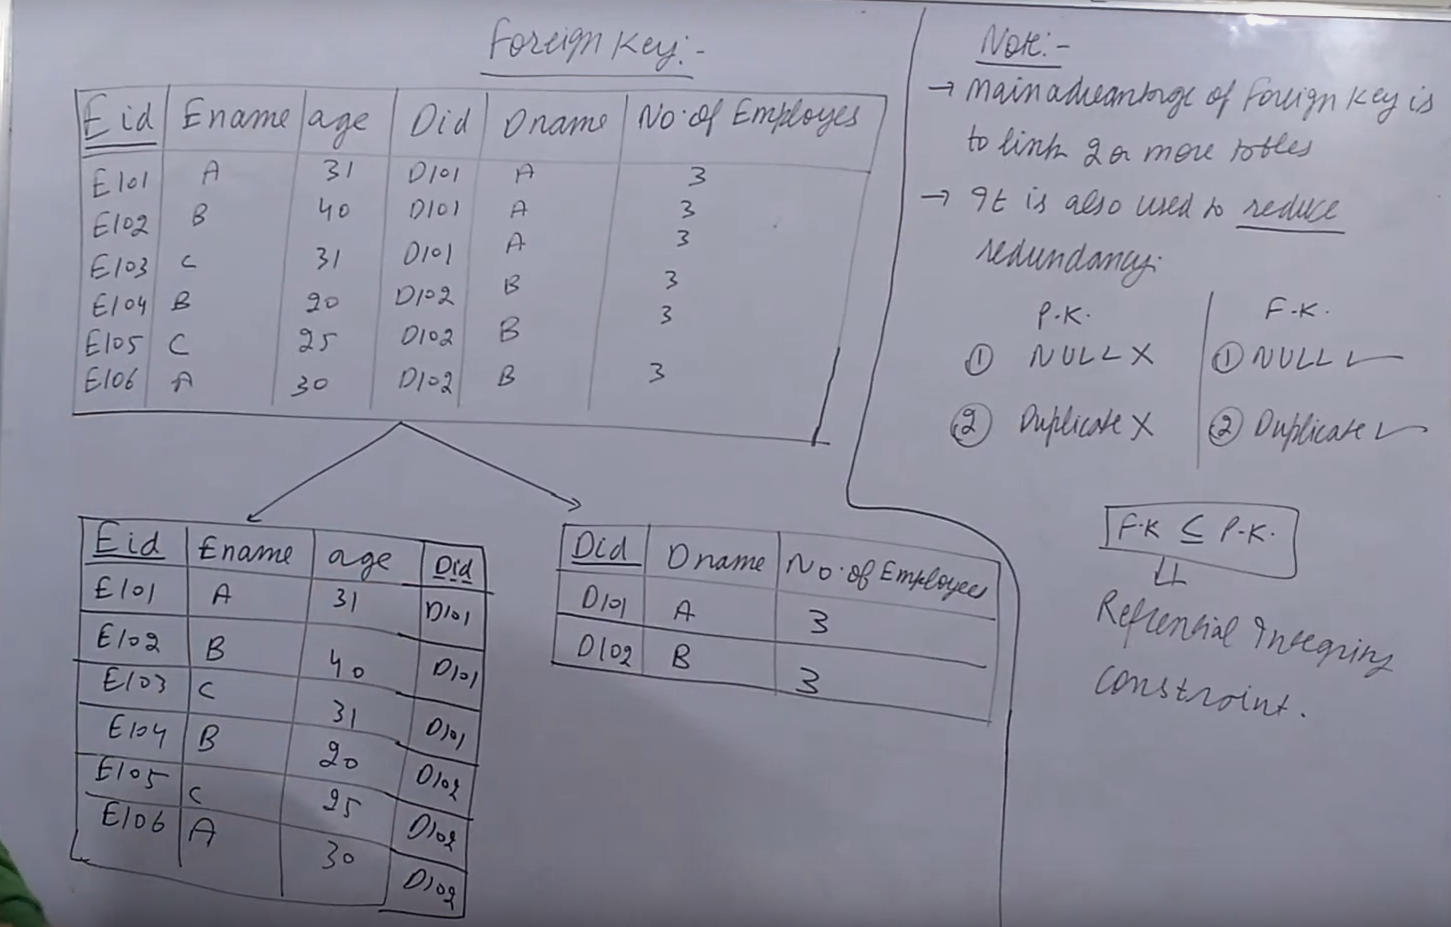 Foreign Key:-
Eid Ename age Did Dname No. of Employes
E101 A 31 D101 A 3
E102 B 40 D101 A 3
E103 C 31 D101 A 3
E104 B 20 D102 B 3
E105 C 25 D102 B 3
E106 A 30 D102 B 3
Eid Ename age Did
E101 A 31 D101
E102 B 40 D101
E103 C 31 D101
E104 B 20 D102
E105 C 25 D102
E106 A 30 D102
Did Dname No. of Employees
D101 A 3
D102 B 3
Note:-
→ Main advantage of Foreign Key is
to link 2 or more tables
→ It is also used to reduce
redundancy.
P.K. F.K.
① NULL X ① NULL ✓
② Duplicate X ② Duplicate ✓
F.K ⊆ P.K.
Refrential Integrity
constraint.